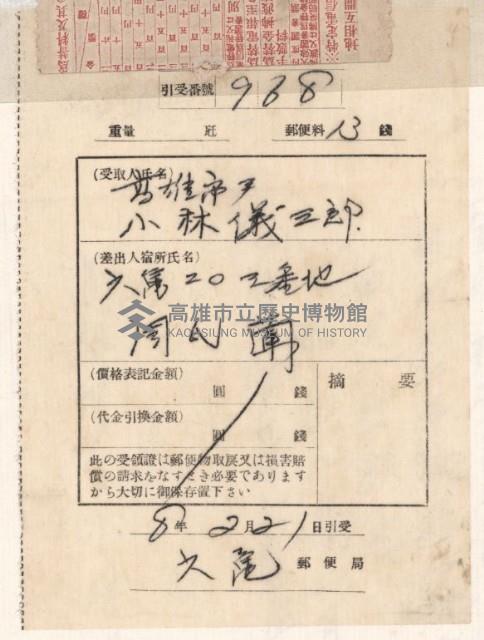 引受番號 968
重量 瓩 郵便料 13 錢
(受取人氏名)
高雄市
小林儀三郎
(差出人宿所氏名)
六龜二〇三番地
高雄市立歷史博物館
KAOHSIUNG MUSEUM OF HISTORY
(價格表記金額)
圓 錢
摘要
(代金引換金額)
圓 錢
此の受領證は郵便物取戾又は損害賠
償の請求をなすとき必要であります
から大切に御保存置下さい
8年 2月21日引受
六龜 郵便局